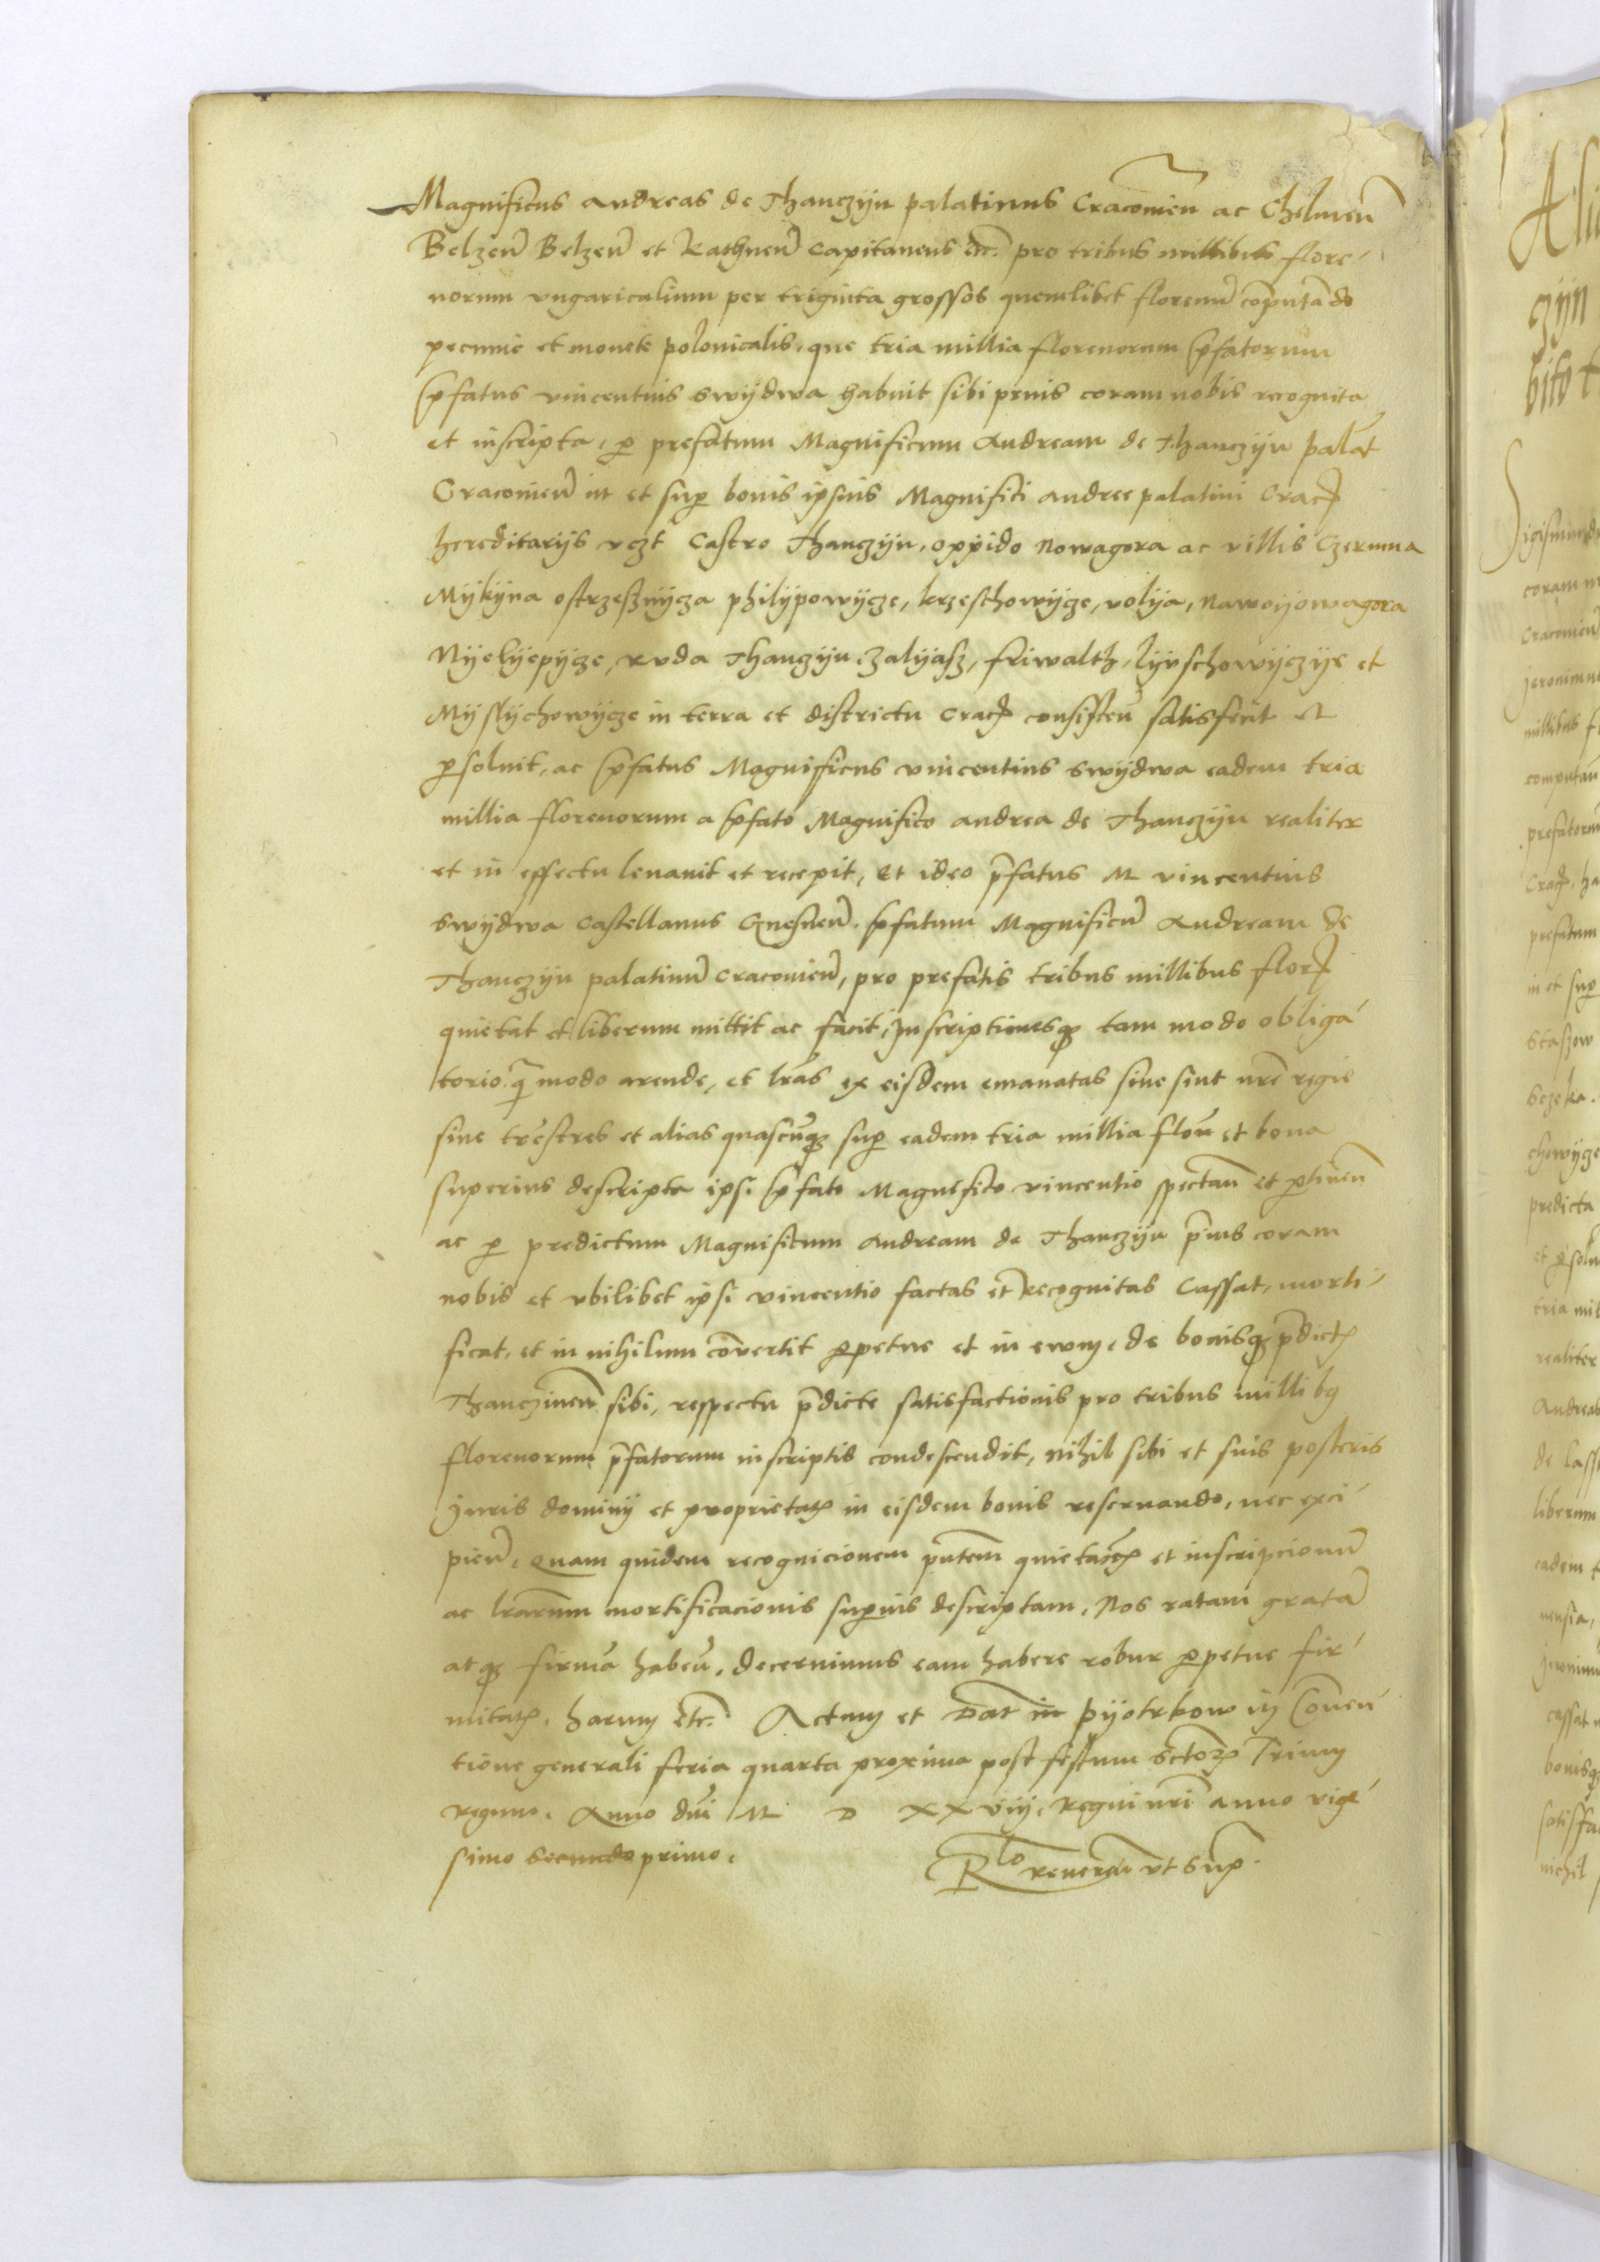 Magnificus Andreas de Thanczyn palatinus Cracovien̄ ac Chelmen̄
Belzen̄ Belzen̄ et Rathnen̄ Capitaneus etc̄. pro tribus millibus flore-
norum ungaricalium per triginta grossos quemlibet florenū computādo
pecunie et monete polonicalis, que tria millia florenorum p̄fatorum
p̄fatus vincentius swydwa habuit sibi prius coram nobis recognita
et inscripta, p̱ prefatum Magnificum Andream de Thanczyn palat̄
Cracovien̄ in et sup̱ bonis ipsius Magnifici andree palatini Crac̄
hereditarijs vczt̄ Castro Thanczyn, oppido Nowagora ac villis Czerunna
Mykyna ostrzesznycza philypowycze, krzeschowycze, volya, Nawoyowagora
Nyelyepycze, ruda Thanczyn, Zalyasz, friwalth, lyuschowyczye et
Myslychowycze in terra et districtu Crac̄ consisten̄ satisfecit et
p̱soluit, ac p̄fatus Magnificus vincentius swydwa eadem tria
millia florenorum a p̄fato Magnifico andrea de Thanczyn realiter
et in effectu leuauit et recepit, et ideo p̄fatus M vincentius
swydwa Castellanus Gnesnen̄. p̄fatum Magnificū Andream de
Thanczyn palatinū Cracovien̄, pro prefatis tribus millibus flor̄
quietat et liberum mittit ac facit, Inscriptionesq̨ tam modo obliga-
torio q̄ modo arende, et lrās ex eisdem emanatas siue sint nrē regie
siue trēstres et alias quascūq̨ sup̱ eadem tria millia flor̄ et bona
superius descripta ipsi p̄fato Magnifico vincentio spectan̄ et p̱tinen̄
ac p̱ predictum Magnificum Andream de Thanczyn p̄ius coram
nobis et vbilibet ipsi vincentio factas et recognitas Cassat, morti-
ficat, et in nihilum cōvertit p̱petue et in ewm, de bonisq̨ p̄dictꝭ
Thanczinen̄ sibi, respectu p̄dicte satisfactionis pro tribus millibꝫ
florenorum p̄fatorum inscriptis condescendit, nihil sibi et suis posteris
Juris dominij et proprietatꝭ in eisdem bonis reseruando, nec exci-
pien̄, Quam quidem recognicionem p̄ntem quietac̄oīs et inscripcionū
ac lrārum mortificacionis sup̱ius descriptam, Nos ratam gratā
atq̨ firmā haben̄, decernimus eam habere robur p̱petue fir-
mitatꝭ, harum etc̄. Actum et Dat̄ in pyotrkow in Cōuen-
tione generali feria quarta proxima post festum sctōrꝫ Trium
regum, Anno dn̄i M D XXviij, Regni nrī anno vige-
simo secundo primo.
Rlo reueren̄ vt sup̄.